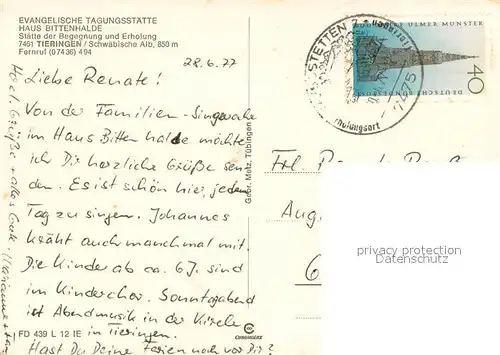 EVANGELISCHE TAGUNGSSTATTE
HAUS BITTENHALDE
Stätte der Begegnung und Erholung
7461 TIERINGEN / Schwäbische Alb, 850 m
Fernruf (07436) 494
28.6.77
Liebe Renate!
Von der Familien-Singwoche
im Haus Bittenhalde möchte
ich Dir herzliche Grüße sen
den. Es ist schön hier, jeden
Tag zu singen. Johannes
kräht auch manchmal mit.
Die Kinder ab ca. 6J. sind
im Kinderchor. Sonntagabend
ist Abendmusik in der Kirche
in Tieringen.
Hast Du Deine Ferien noch vor Dir?
Herzl. Grüße + alles Gute
FD 439 L 12 IE
CHROMOLUX
Gebr. Metz, Tübingen
STETTEN
7475
Erholungsort
ULMER MÜNSTER
DEUTSCHE BUNDESPOST
40
Frl.
Aug
6
privat sammler bei
© ansichtskartenversand.com